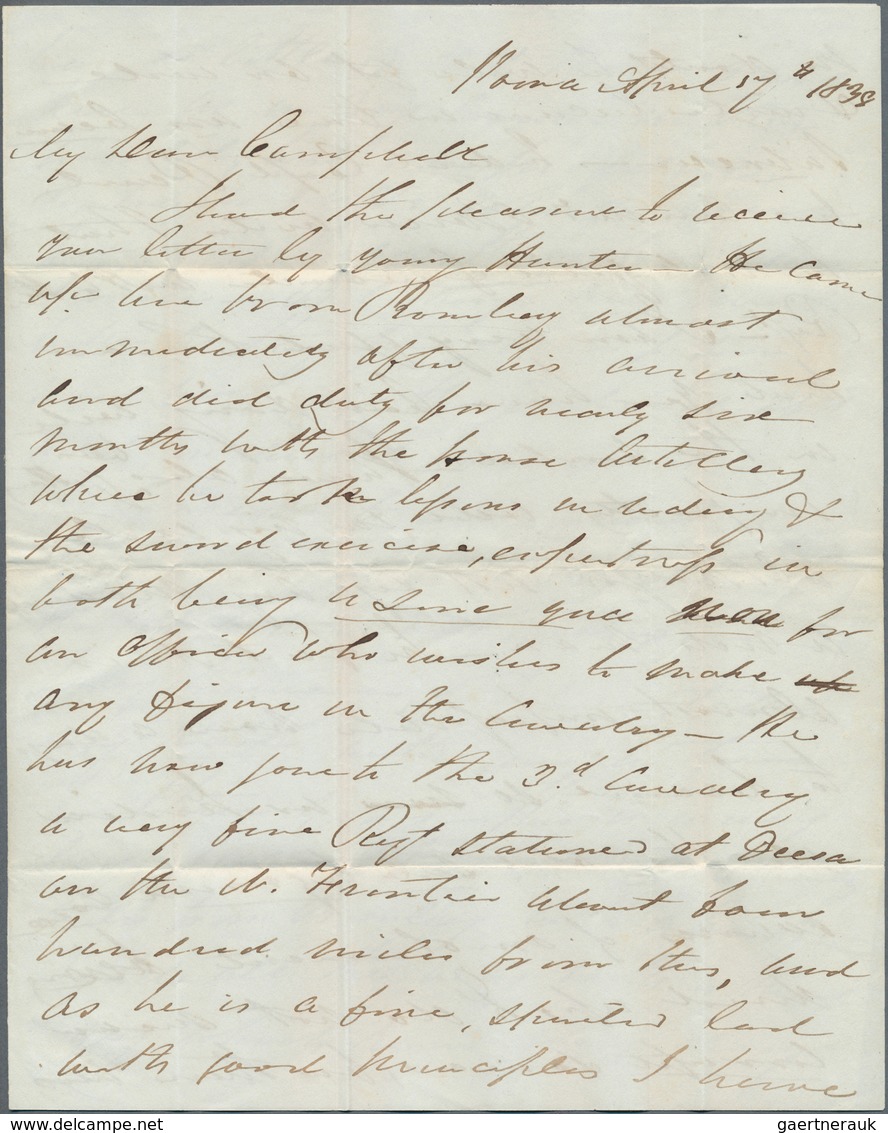 Poona April 17th 1838
My Dear Campbell
I had the pleasure to receive
your letter by young Hunter - He came
up here from Bombay almost
immediately after his arrival
and did duty for nearly six
months with the Horse Artillery
where he took lessons in riding &
the sword exercise, expertness in
both being a sine qua non for
an officer who wishes to make
any figure in the Cavalry - He
has now gone to the 3d Cavalry
a very fine Regt stationed at Deesa
on the N. Frontier about four
hundred miles from this, and
as he is a fine, spirited lad
with good principles I have
delcampe.net
gaertnerauk